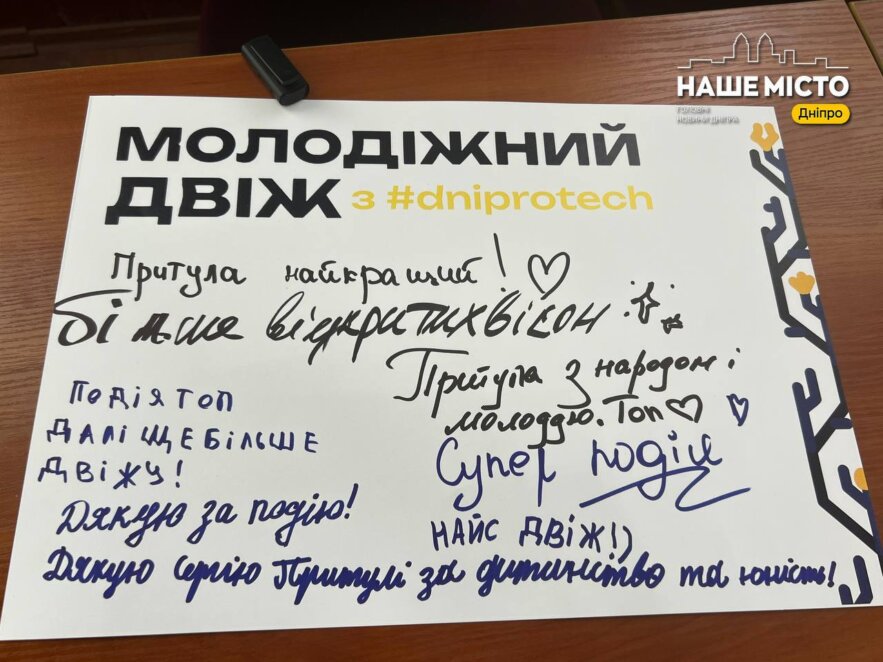 НАШЕ МІСТО
Дніпро
ГОЛОВНІ
НОВИНИ ДНІПРА
МОЛОДІЖНИЙ
ДВІЖ з #dniprotech
Притула найкращий!
більше відкритих вікон
Притула з народом і
молоддю. Топ
ПОДІЯ ТОП
ДАЛІ ЩЕ БІЛЬШЕ
ДВІЖУ!
Супер подія
Дякую за подію!
НАЙС ДВІЖ!)
Дякую Сергію Притулі за дитинство та юність!